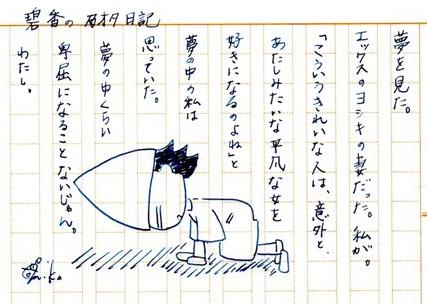 碧香の 日記
夢を見た。
エックスのヨシキの妻だった。私が。
「こういうきれいな人は、意外と、
あたしみたいな平凡な女を
好きになるのよね」と
夢の中の私は
思っていた。
夢の中くらい
卑屈になることないじゃん。
わたし。